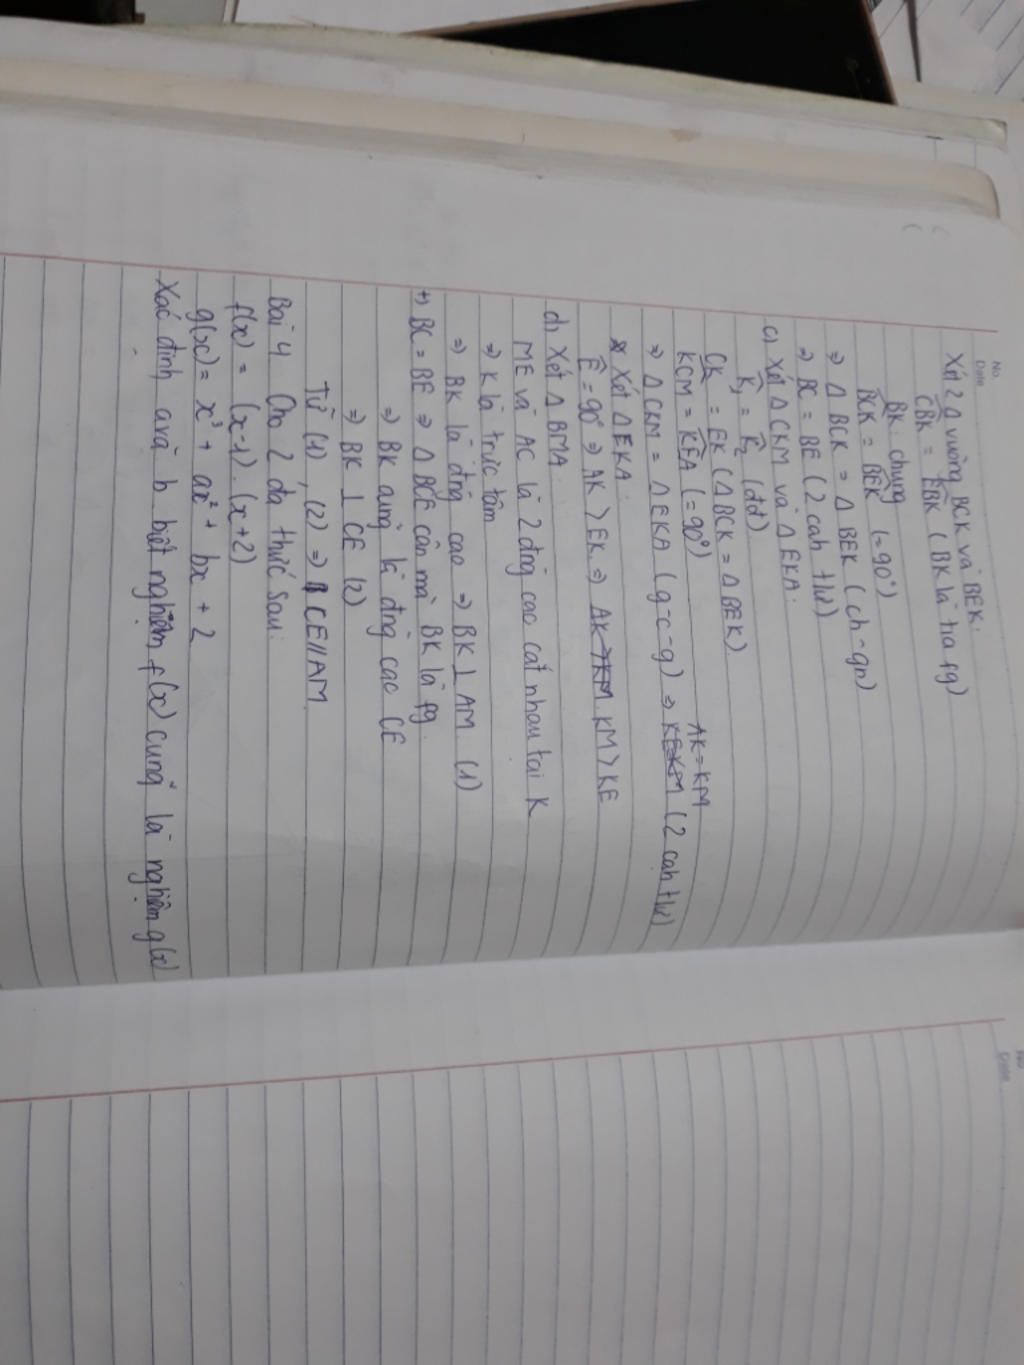 No.
Date
Xét 2 Δ vuông BCK và BEK.
CBK = EBK (BK là tia fg)
BK: chung
BCK = BEK (=90°)
⇒ Δ BCK = Δ BEK (ch-gn)
⇒ BC = BE (2 cah tlư)
c) Xét Δ CKM và Δ EKA.
K₁ = K₂ (đđ)
CK = EK (Δ BCK = Δ BEK)
KCM = KEA (=90°)
AK = KM
⇒ Δ CKM = Δ EKA (g-c-g) ⇒ KE=KM (2 cah tlư)
* Xét Δ EKA.
E = 90° ⇒ AK > EK ⇒ AK > KM. KM > KE
d) Xét Δ BMA.
ME và AC là 2 đng cao cắt nhau tại K
⇒ K là trực tâm
⇒ BK là đng cao ⇒ BK ⊥ AM (1)
+) BC = BE ⇒ Δ BCE cân mà BK là fg.
⇒ BK cũng là đng cao CE
⇒ BK ⊥ CE (2)
Từ (1), (2) ⇒ CE // AM
Bài 4 Cho 2 đa thức sau:
f(x) = (x-1).(x+2)
g(x) = x³ + ax² + bx + 2
Xác định a và b biết nghiệm f(x) cũng là nghiệm g(x)
No
Date